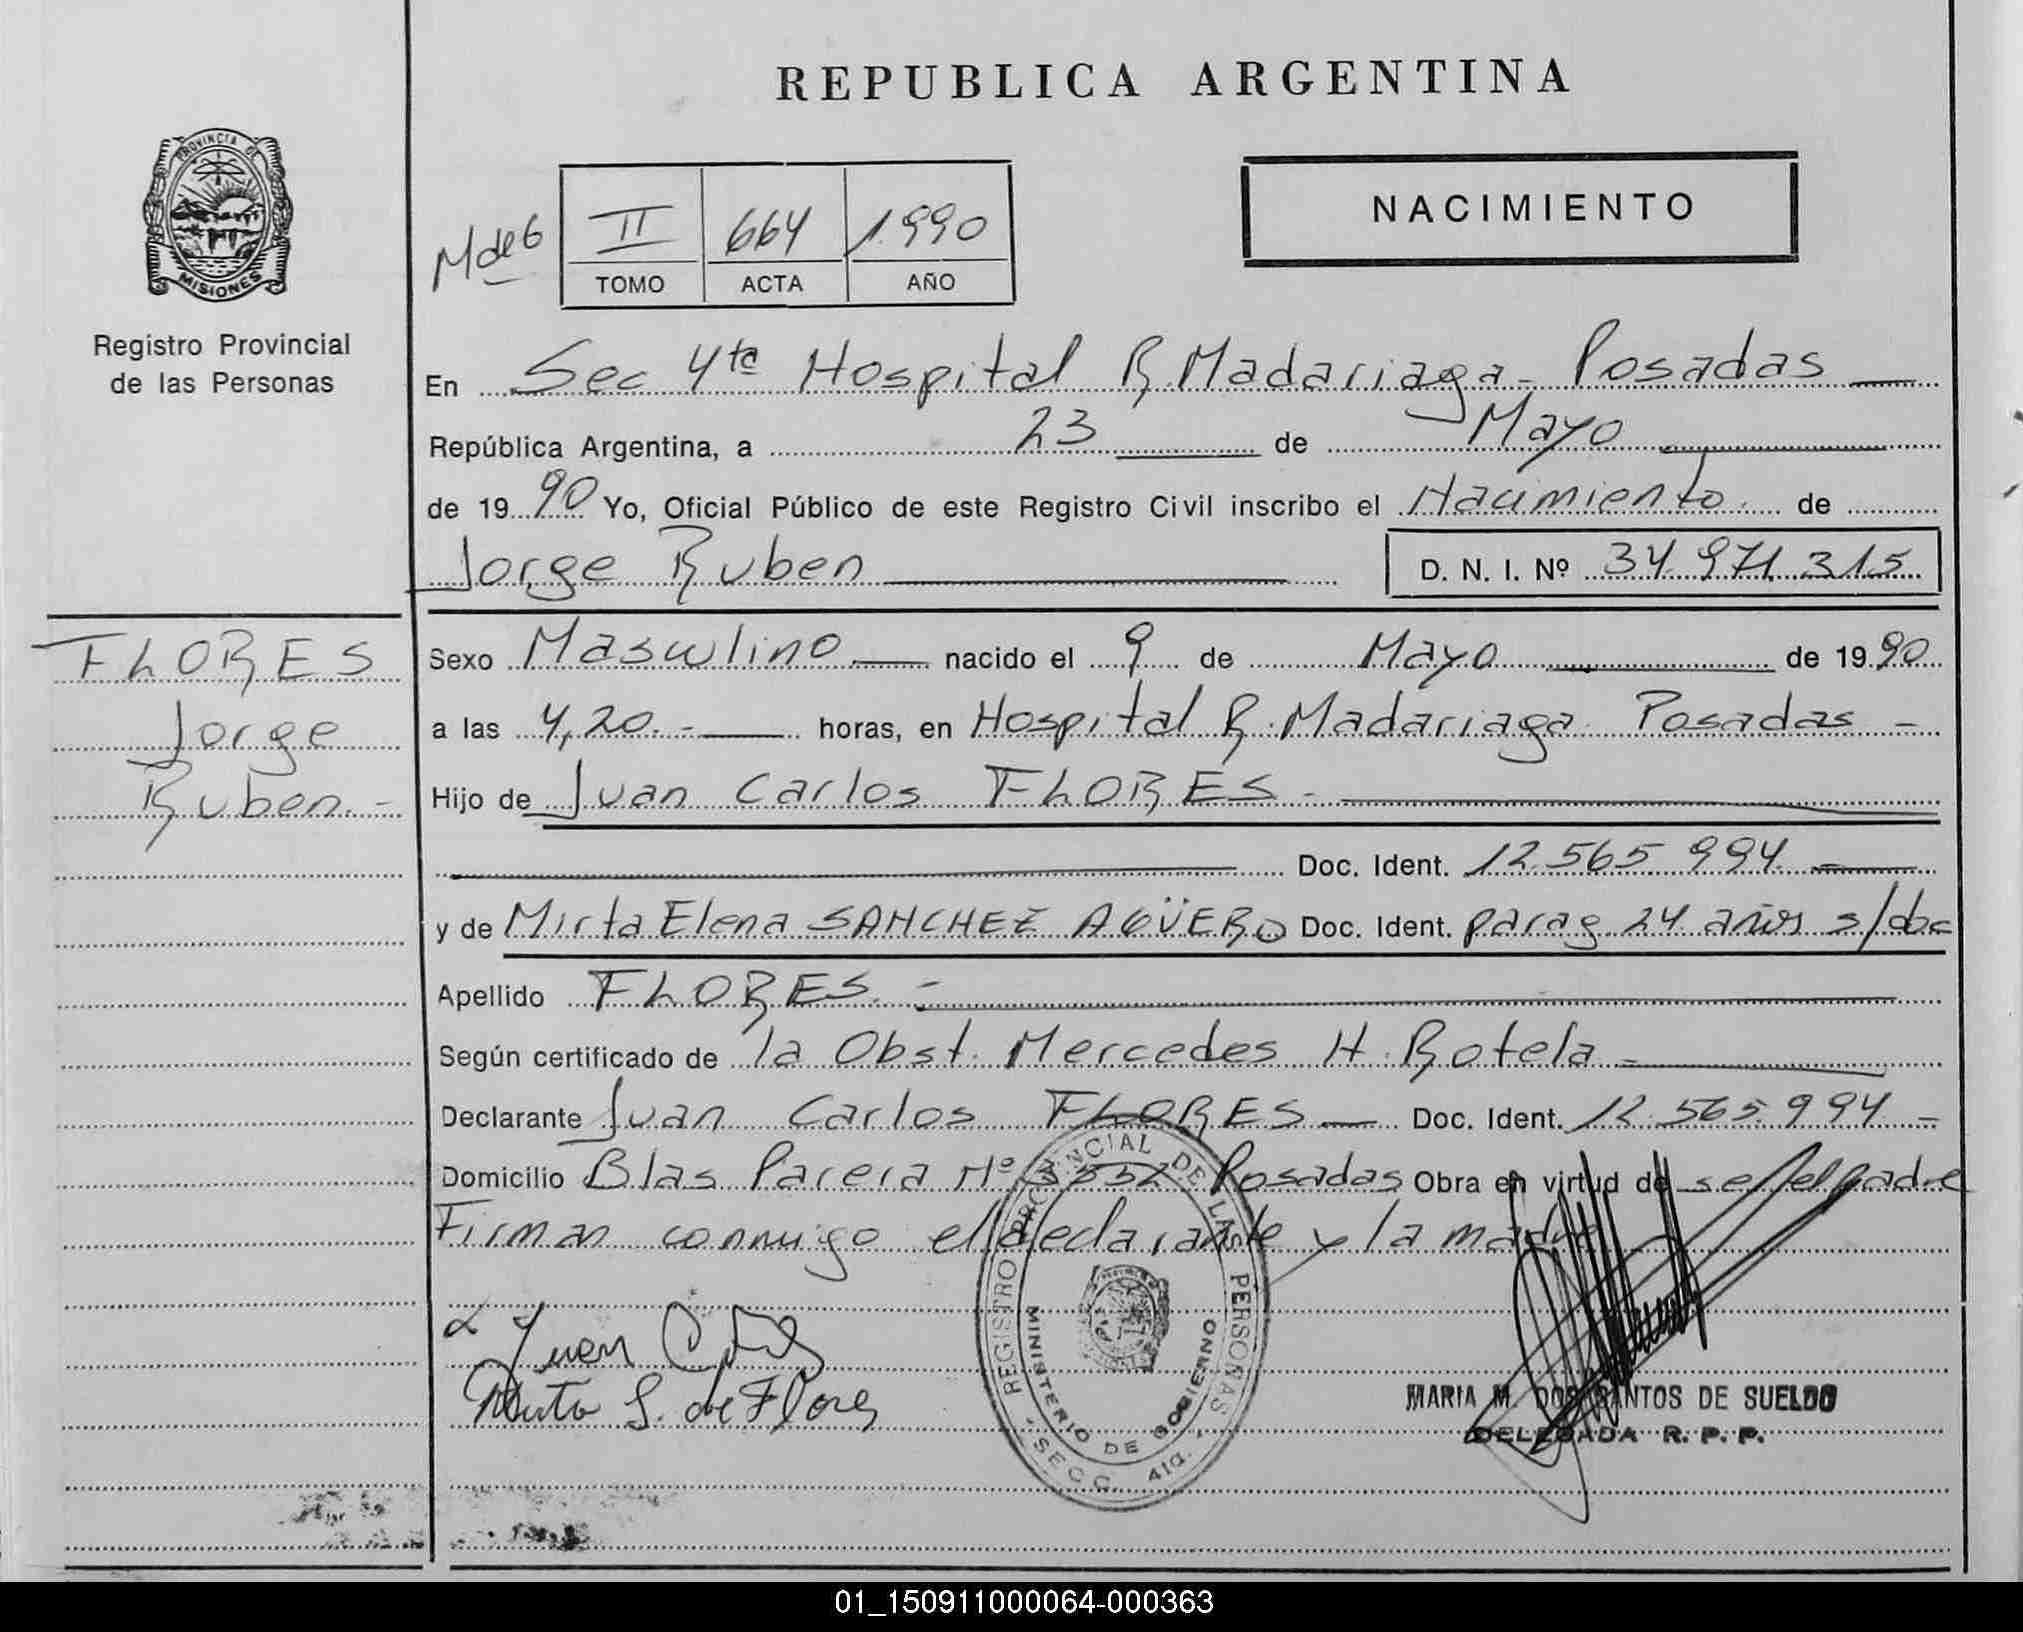 REPUBLICA ARGENTINA
PROVINCIA DE
MISIONES
Registro Provincial
de las Personas
NACIMIENTO
M de 6 II 664 1990
TOMO ACTA AÑO
En Sec 4ta Hospital R. Madariaga - Posadas
República Argentina, a 23 de Mayo
de 1990 Yo, Oficial Público de este Registro Civil inscribo el Nacimiento de
Jorge Ruben D. N. I. Nº 34.971.315
FLORES
Jorge
Ruben.-
Sexo Masculino nacido el 9 de Mayo de 1990
a las 4,20.- horas, en Hospital R. Madariaga Posadas -
Hijo de Juan Carlos FLORES -
Doc. Ident. 12.565.994.
y de Mirta Elena SANCHEZ AGÜERO Doc. Ident. parag 24 años s/doc
Apellido FLORES. -
Según certificado de la Obst. Mercedes H. Rotela -
Declarante Juan Carlos FLORES Doc. Ident. 12.565.994 -
Domicilio Blas Parera Nº 3332 Posadas Obra en virtud de ser el padre
Firman conmigo el declarante y la madre
Juan C.
Mirta S. de Flores
REGISTRO PROVINCIAL DE LAS PERSONAS
MINISTERIO DE GOBIERNO
SECC. 4ta.
MARIA M. DOS SANTOS DE SUELDO
DELEGADA R. P. P.
01_150911000064-000363